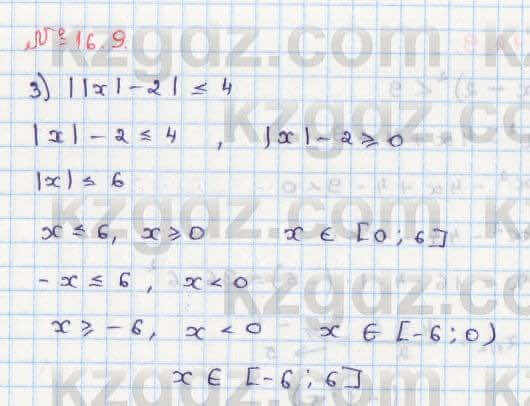 № 16.9.
3) ||x| - 2| ≤ 4
|x| - 2 ≤ 4 , |x| - 2 ⩾ 0
|x| ≤ 6
x ≤ 6, x ⩾ 0 x ∈ [0 ; 6]
- x ≤ 6 , x < 0
x ⩾ - 6, x < 0 x ∈ [-6 ; 0)
x ∈ [-6 ; 6]
kzgdz.com